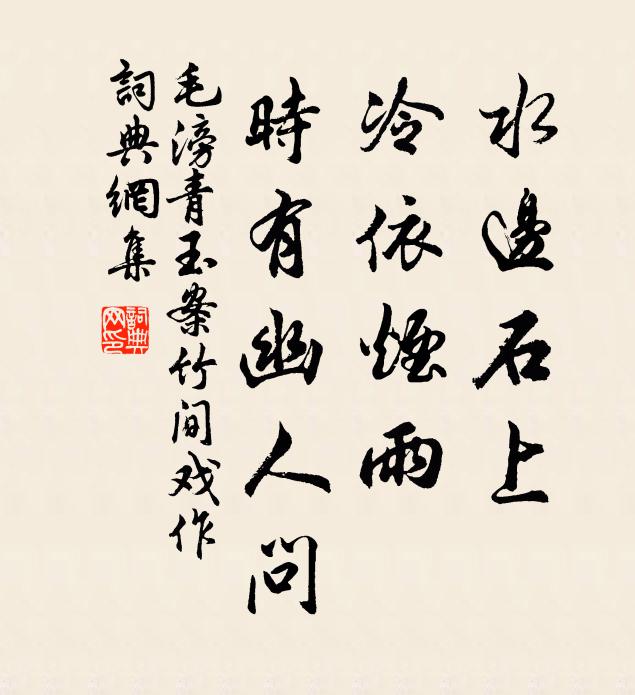 水邊石上
冷依煙雨
時有幽人問
毛滂青玉案竹間戏作
詞典網集
詞典
网印